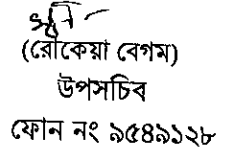 (রোকেয়া বেগম)
উপসচিব
ফোন নং ৯৫৪৯১২৮